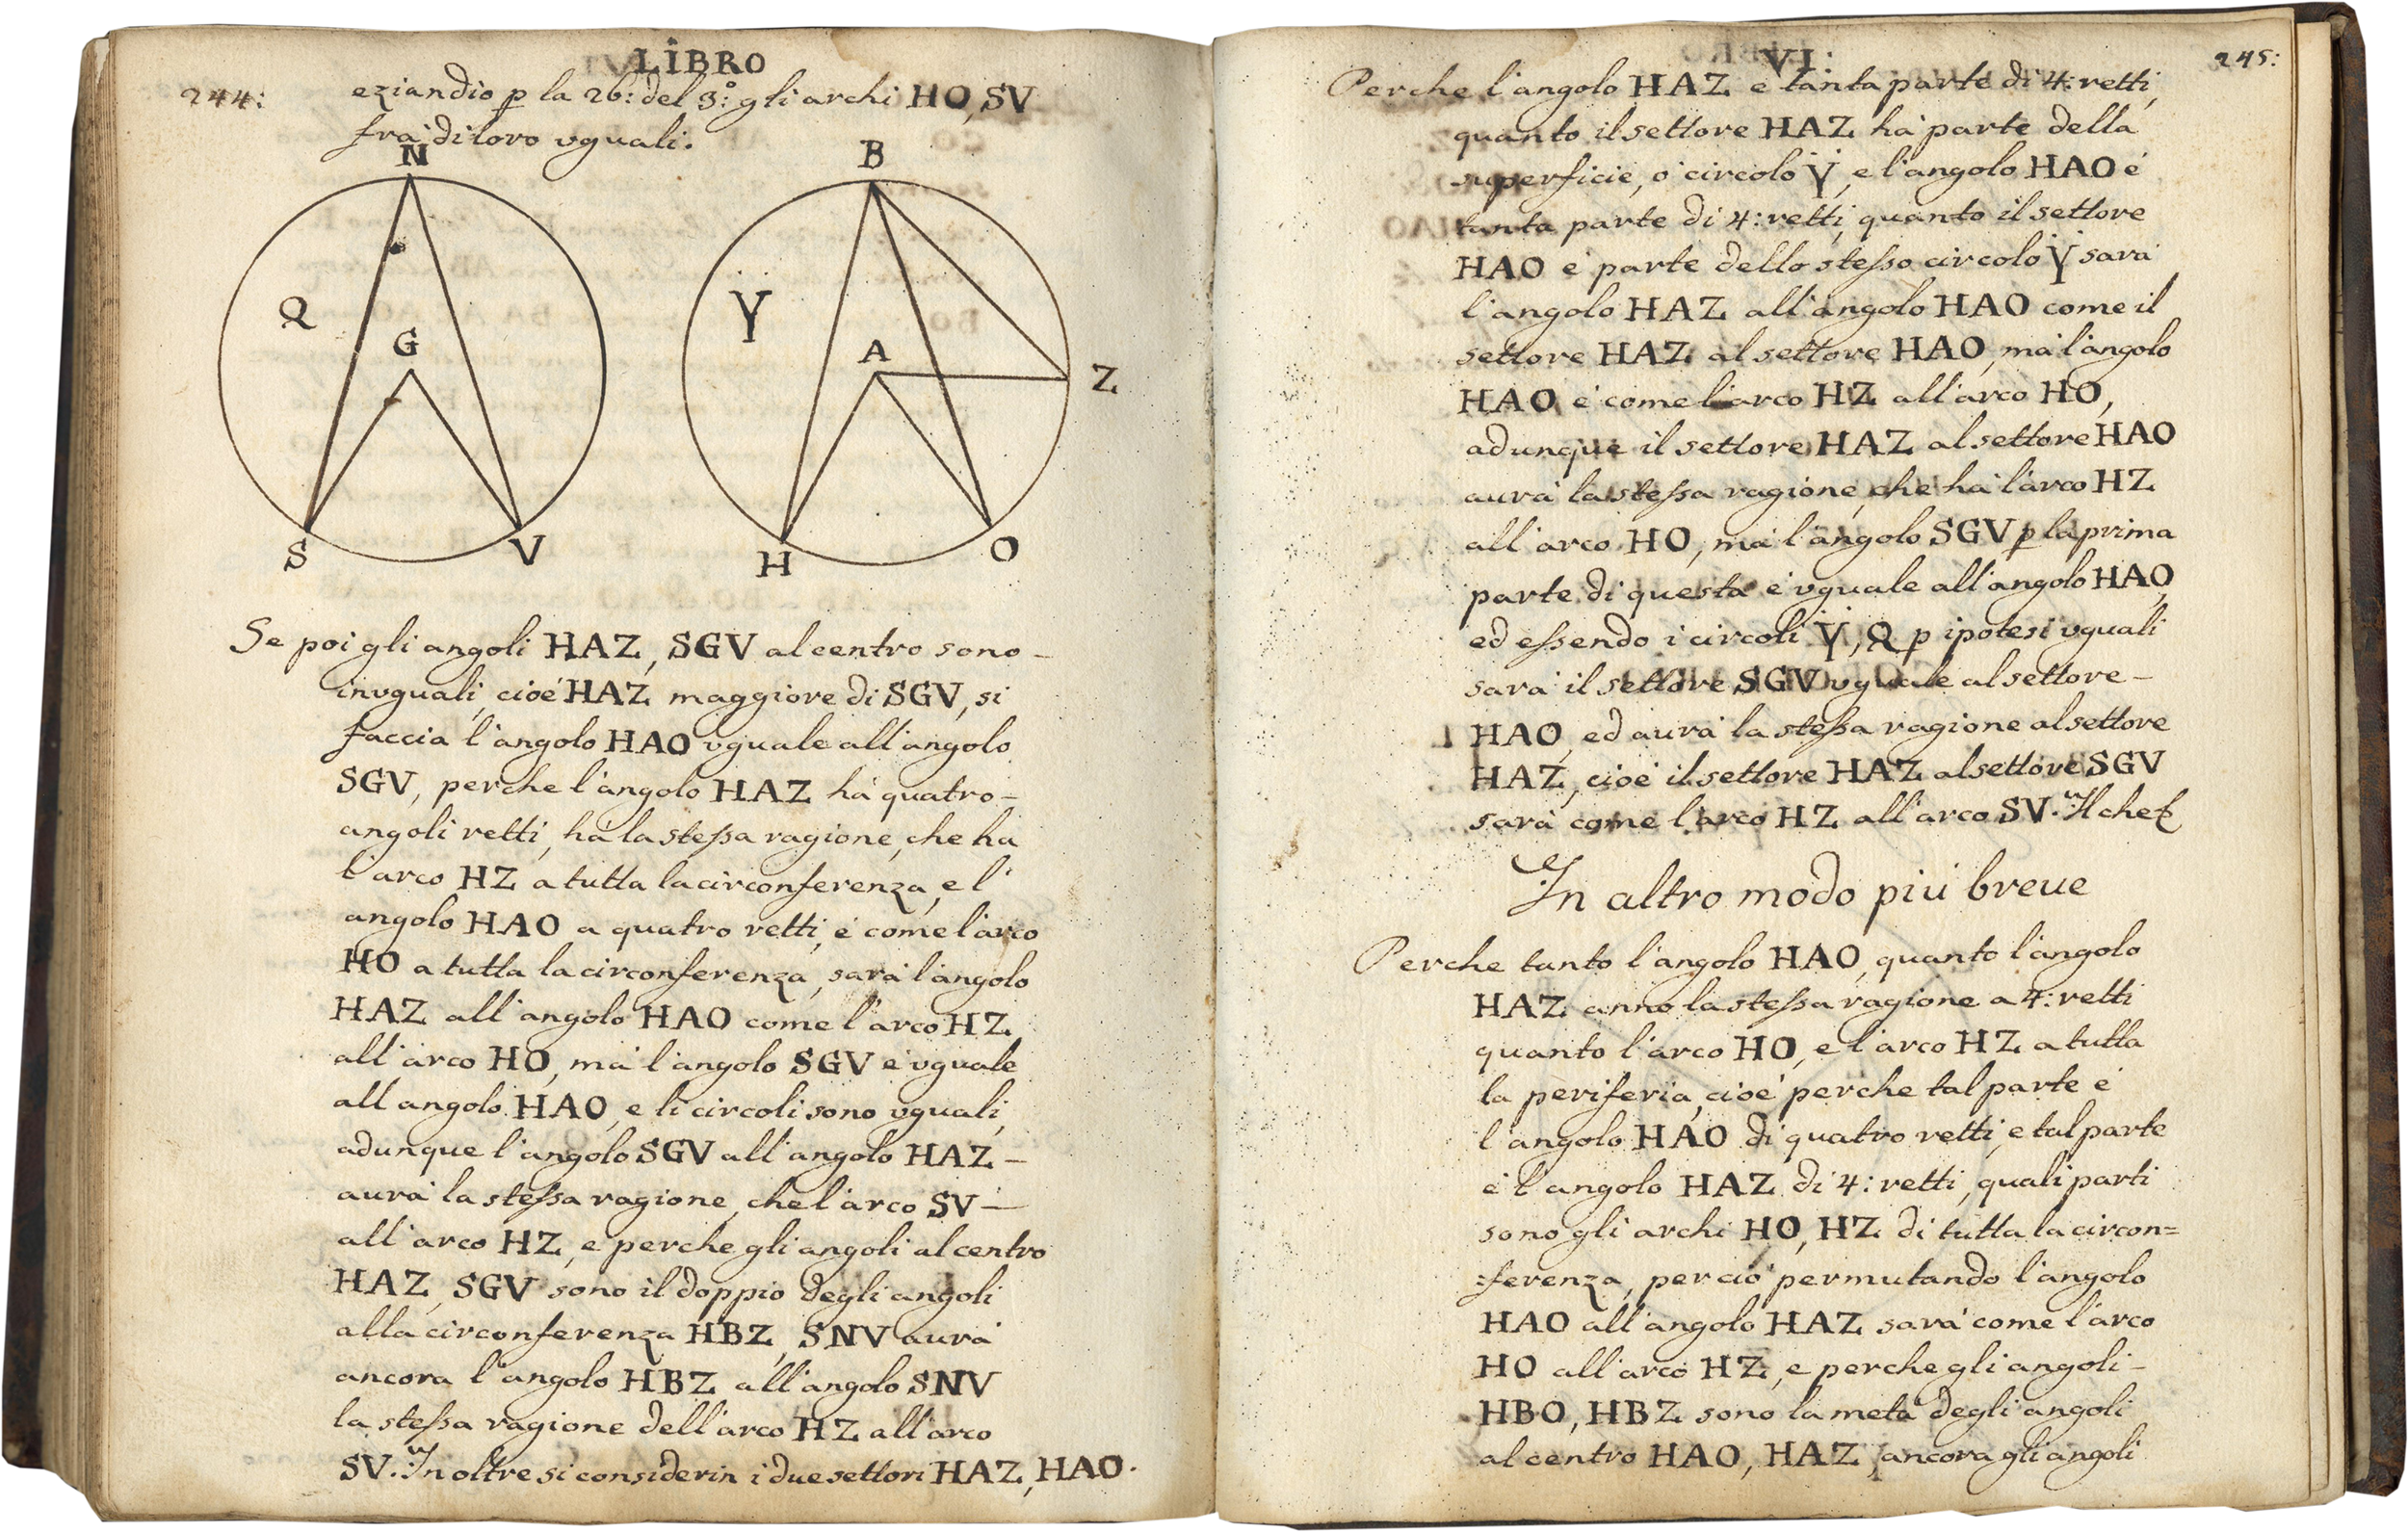 LIBRO
244:
eziandio p la 26: del 3:° gli archi HO, SV
frà di loro vguali.
N
B
Q
Ÿ
G
A
Z
S
V
H
O
Se poi gli angoli HAZ, SGV al centro sono –
invguali, cioé HAZ maggiore di SGV, si
faccia l'angolo HAO vguale all'angolo
SGV, perche l'angolo HAZ há quatro –
angoli retti, há la stessa ragione, che ha
l'arco HZ a tutta la circonferenza, e l'
angolo HAO a quatro retti, é come l'arco
HO a tutta la circonferenza, sará l'angolo
HAZ all'angolo HAO come l'arco HZ
all'arco HO, má l'angolo SGV é vguale
all angolo HAO, e li circoli sono vguali,
adunque l'angolo SGV all'angolo HAZ –
aurá la stessa ragione, che l'arco SV –
all'arco HZ, e perche gli angoli al centro
HAZ, SGV sono il doppio degli angoli
alla circonferenza HBZ, SNV aurá
ancora l'angolo HBZ all'angolo SNV
la stessa ragione dell'arco HZ all'arco
SV. In oltre si considerin i due settori HAZ, HAO.
VI:
245:
Perche l'angolo HAZ e tanta parte di 4: retti,
quanto il settore HAZ há parte della
superficie, ó circolo Ÿ, e l'angolo HAO é
tanta parte di 4: retti, quanto il settore
HAO é parte dello stesso circolo Ÿ sará
l'angolo HAZ all'angolo HAO come il
settore HAZ al settore HAO, má l'angolo
HAO é come l'arco HZ all'arco HO,
adunque il settore HAZ al settore HAO
aurá la stessa ragione, che há l'arco HZ
all'arco HO, má l'angolo SGV p la prima
parte di questa é vguale all'angolo HAO,
ed essendo i circoli Ÿ, Q p ipotesi vguali
sará il settore SGV vguale al settore –
HAO, ed aurá la stessa ragione al settore
HAZ, cioé il settore HAZ al settore SGV
sará come l'arco HZ all'arco SV. Il che
In altro modo piú breue
Perche tanto l'angolo HAO, quanto l'angolo
HAZ anno la stessa ragione a 4: retti
quanto l'arco HO, e l'arco HZ a tutta
la periferia, cioé perche tal parte é
l'angolo HAO di quatro retti, e tal parte
é l'angolo HAZ di 4: retti, quali parti
sono gli archi HO, HZ di tutta la circon=
:ferenza, perció permutando l'angolo
HAO all'angolo HAZ sará come l'arco
HO all'arco HZ, e perche gli angoli –
HBO, HBZ sono la metá degli angoli
al centro HAO, HAZ, ancora gli angoli